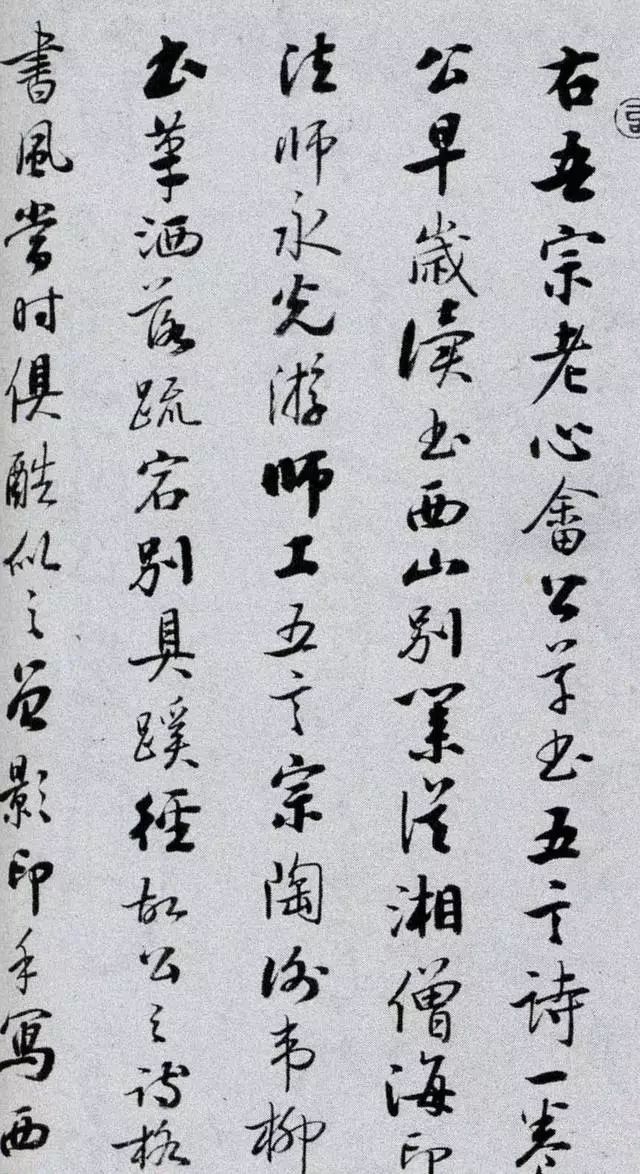 右吾宗老心畬公草书五言詩一卷
公早歲讀书西山别業從湘僧海印
法师永光游师工五言宗陶谢韦柳
书草洒落疏宕别具蹊徑故公之诗格
書風當时俱酷似之曾影印手寫西